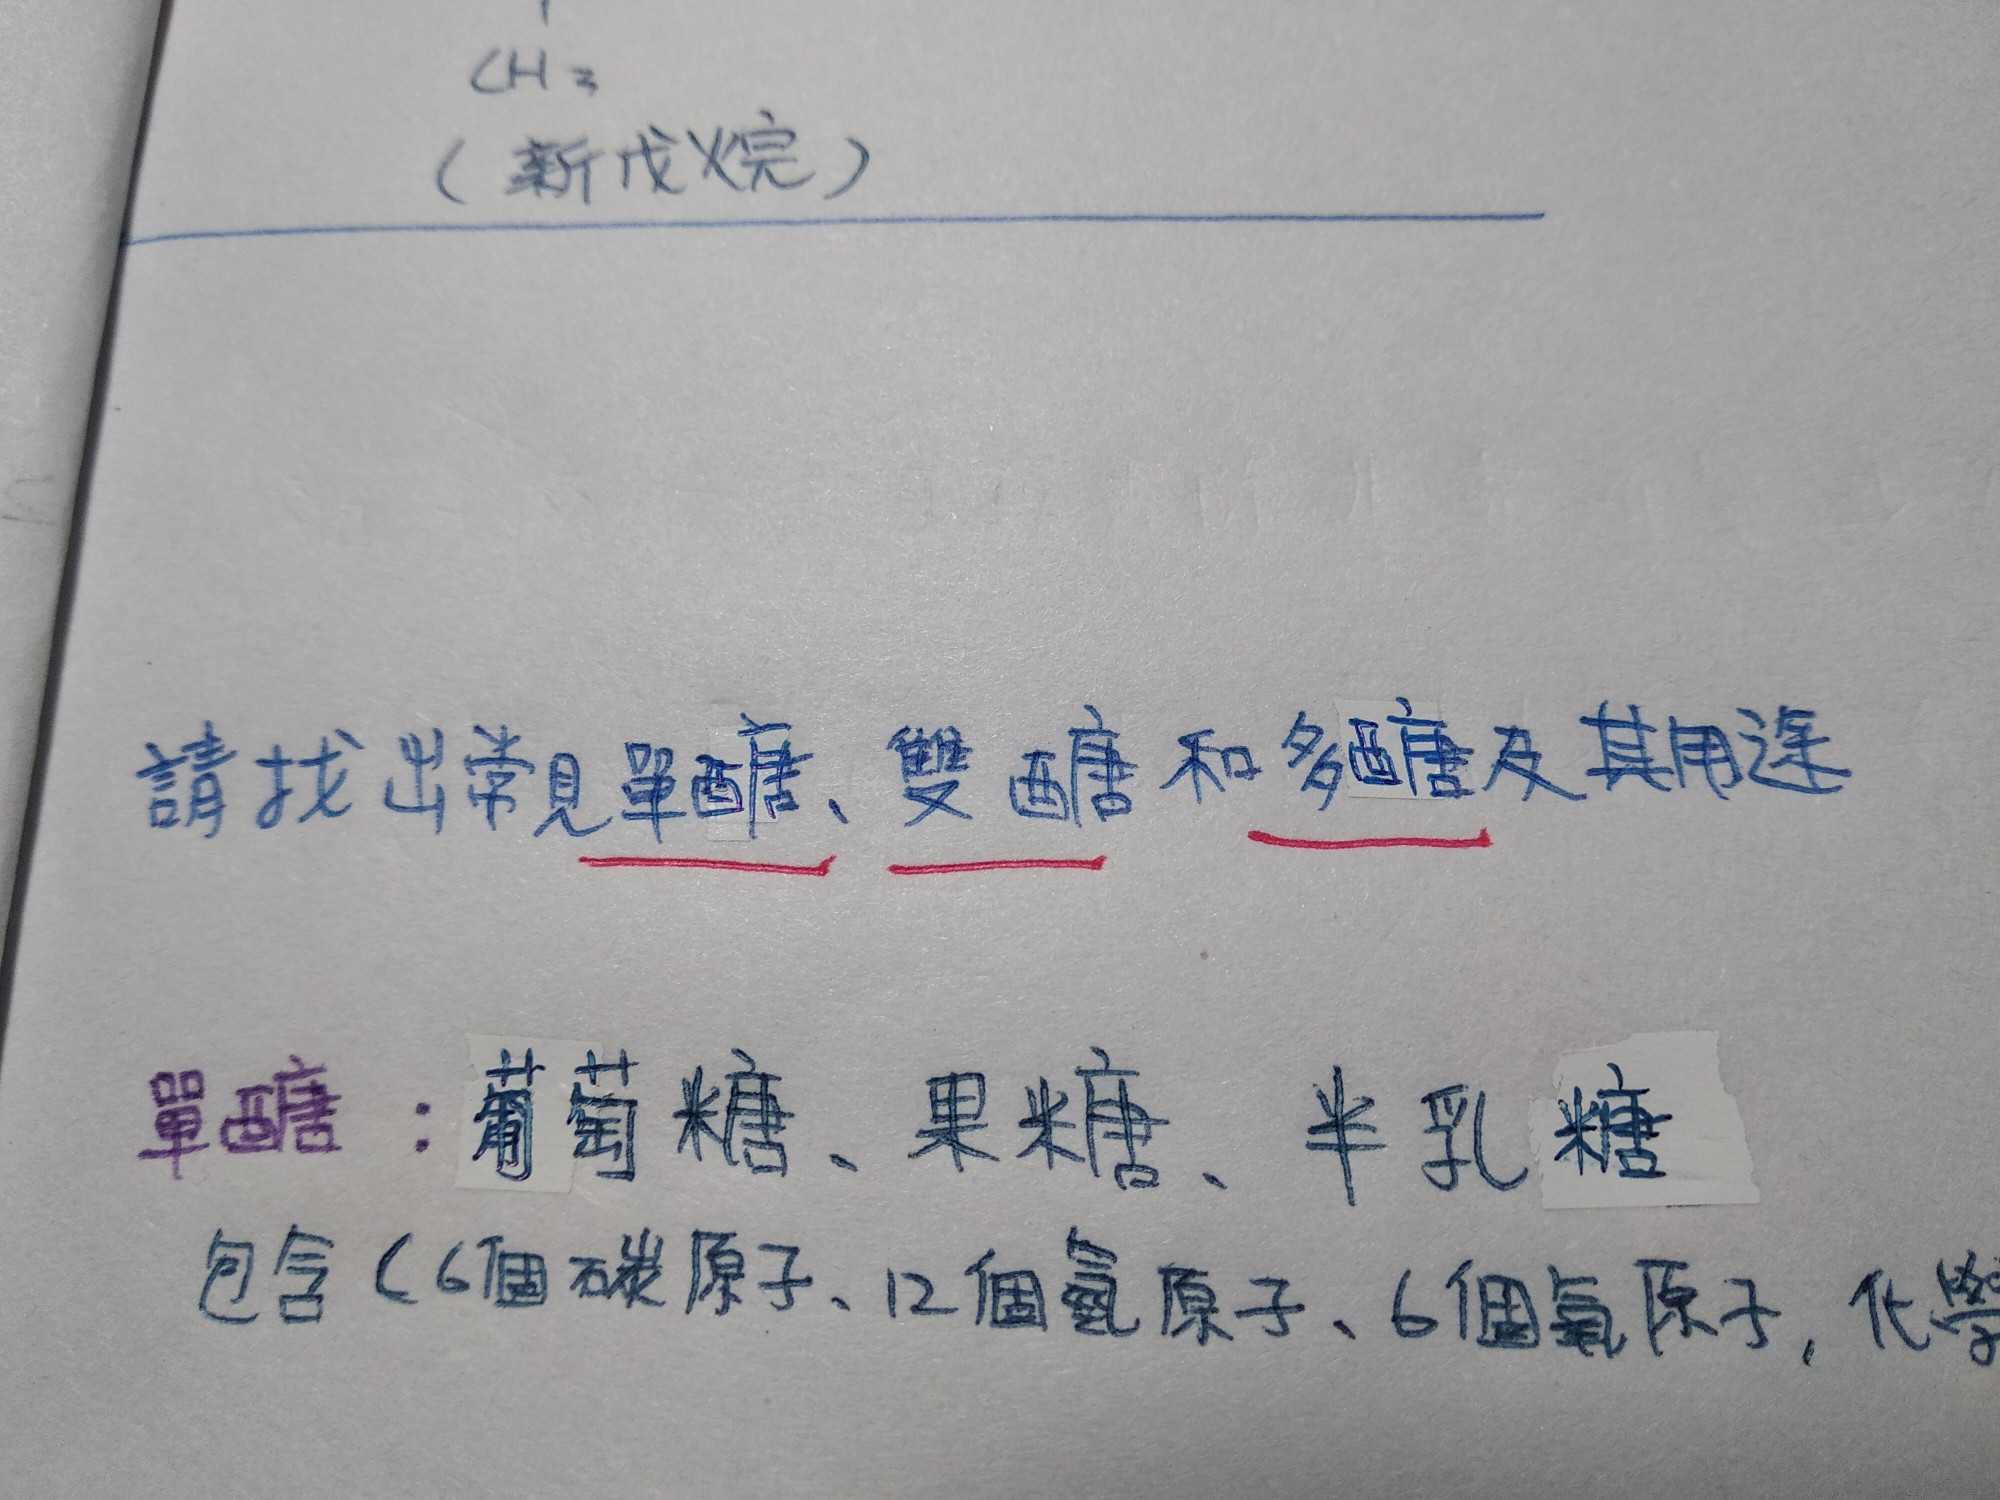 CH3
(新戊烷)
請找出常見單醣、雙醣和多醣及其用途
單醣：葡萄糖、果糖、半乳糖
包含(6個碳原子、12個氫原子、6個氧原子，化學